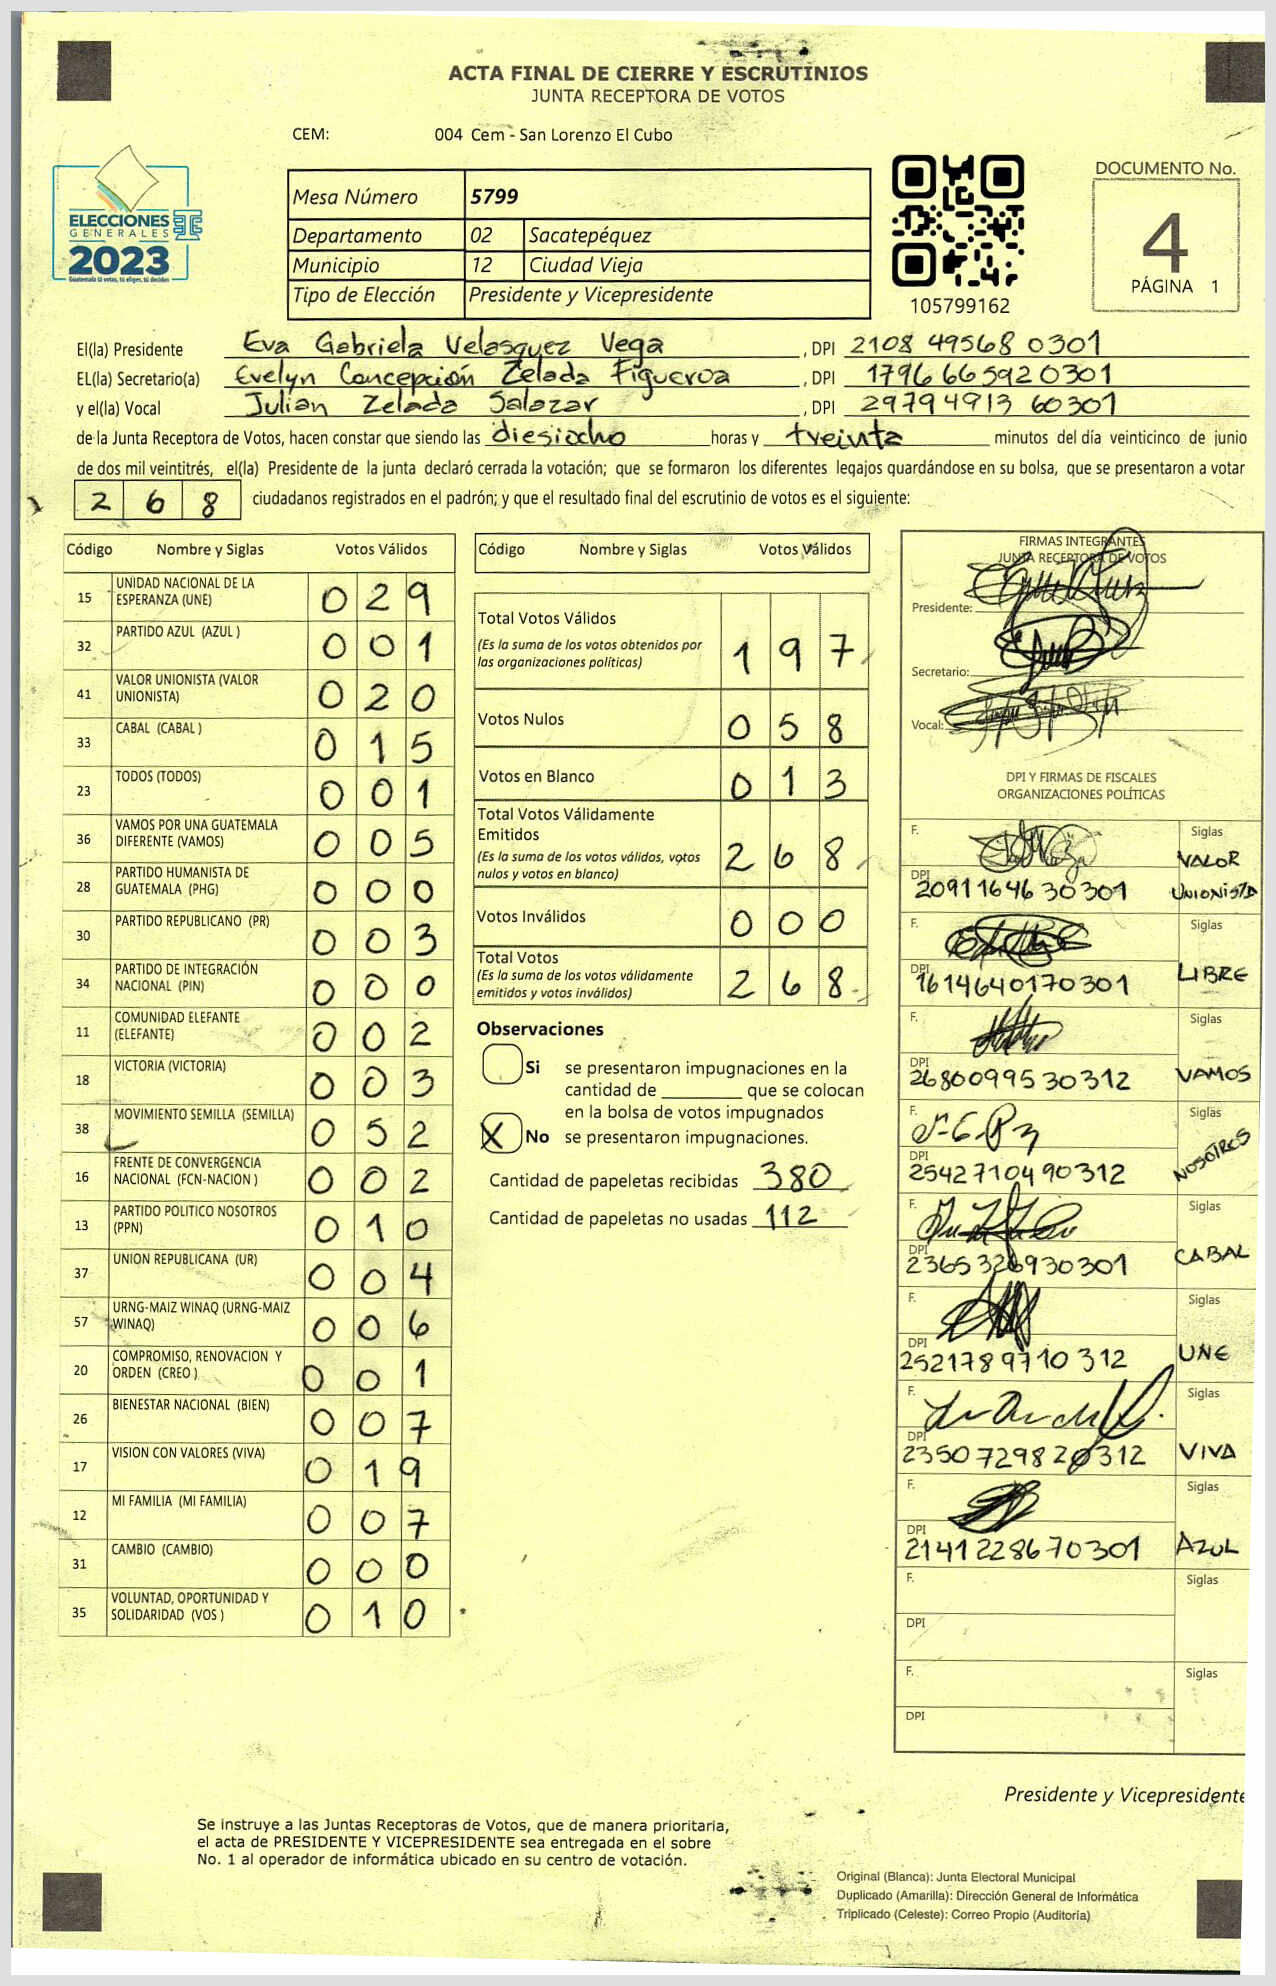 ACTA FINAL DE CIERRE Y ESCRUTINIOS
JUNTA RECEPTORA DE VOTOS
CEM: 004 Cem - San Lorenzo El Cubo
ELECCIONES
GENERALES
2023
Guatemala tú votas, tú eliges, tú decides
Mesa Número 5799
Departamento 02 Sacatepéquez
Municipio 12 Ciudad Vieja
Tipo de Elección Presidente y Vicepresidente
105799162
DOCUMENTO No.
4
PÁGINA 1
El(la) Presidente Eva Gabriela Velasquez Vega , DPI 2108 49568 0301
EL(la) Secretario(a) Evelyn Concepción Zelada Figueroa , DPI 1796 66592 0301
y el(la) Vocal Julian Zelada Salazar , DPI 29794913 60301
de la Junta Receptora de Votos, hacen constar que siendo las diesiocho horas y treinta minutos del día veinticinco de junio
de dos mil veintitrés, el(la) Presidente de la junta declaró cerrada la votación; que se formaron los diferentes legajos quardándose en su bolsa, que se presentaron a votar
2 6 8 ciudadanos registrados en el padrón; y que el resultado final del escrutinio de votos es el siguiente:
Código Nombre y Siglas Votos Válidos
15 UNIDAD NACIONAL DE LA ESPERANZA (UNE) 0 2 9
32 PARTIDO AZUL (AZUL ) 0 0 1
41 VALOR UNIONISTA (VALOR UNIONISTA) 0 2 0
33 CABAL (CABAL ) 0 1 5
23 TODOS (TODOS) 0 0 1
36 VAMOS POR UNA GUATEMALA DIFERENTE (VAMOS) 0 0 5
28 PARTIDO HUMANISTA DE GUATEMALA (PHG) 0 0 0
30 PARTIDO REPUBLICANO (PR) 0 0 3
34 PARTIDO DE INTEGRACIÓN NACIONAL (PIN) 0 0 0
11 COMUNIDAD ELEFANTE (ELEFANTE) 0 0 2
18 VICTORIA (VICTORIA) 0 0 3
38 MOVIMIENTO SEMILLA (SEMILLA) 0 5 2
16 FRENTE DE CONVERGENCIA NACIONAL (FCN-NACION ) 0 0 2
13 PARTIDO POLITICO NOSOTROS (PPN) 0 1 0
37 UNION REPUBLICANA (UR) 0 0 4
57 URNG-MAIZ WINAQ (URNG-MAIZ WINAQ) 0 0 6
20 COMPROMISO, RENOVACION Y ORDEN (CREO ) 0 0 1
26 BIENESTAR NACIONAL (BIEN) 0 0 7
17 VISION CON VALORES (VIVA) 0 1 9
12 MI FAMILIA (MI FAMILIA) 0 0 7
31 CAMBIO (CAMBIO) 0 0 0
35 VOLUNTAD, OPORTUNIDAD Y SOLIDARIDAD (VOS ) 0 1 0
Código Nombre y Siglas Votos Válidos
Total Votos Válidos
(Es la suma de los votos obtenidos por las organizaciones políticas) 1 9 7
Votos Nulos 0 5 8
Votos en Blanco 0 1 3
Total Votos Válidamente Emitidos
(Es la suma de los votos válidos, votos nulos y votos en blanco) 2 6 8
Votos Inválidos 0 0 0
Total Votos
(Es la suma de los votos válidamente emitidos y votos inválidos) 2 6 8
Observaciones
Si se presentaron impugnaciones en la
cantidad de ________ que se colocan
en la bolsa de votos impugnados
X No se presentaron impugnaciones.
Cantidad de papeletas recibidas 380
Cantidad de papeletas no usadas 112
FIRMAS INTEGRANTES
JUNTA RECEPTORA DE VOTOS
Presidente:
Secretario:
Vocal:
DPI Y FIRMAS DE FISCALES
ORGANIZACIONES POLÍTICAS
F. Siglas VALOR UNIONISTA
DPI 2091164630301
F. Siglas LIBRE
DPI 1614640170301
F. Siglas VAMOS
DPI 2680099530312
F. Siglas NOSOTROS
DPI 2542710490312
F. Siglas CABAL
DPI 2365326930301
F. Siglas UNE
DPI 2521789710312
F. Siglas VIVA
DPI 2350729820312
F. Siglas AZUL
DPI 2141228670301
F. Siglas
DPI
F. Siglas
DPI
Presidente y Vicepresidente
Se instruye a las Juntas Receptoras de Votos, que de manera prioritaria,
el acta de PRESIDENTE Y VICEPRESIDENTE sea entregada en el sobre
No. 1 al operador de informática ubicado en su centro de votación.
Original (Blanca): Junta Electoral Municipal
Duplicado (Amarilla): Dirección General de Informática
Triplicado (Celeste): Correo Propio (Auditoría)